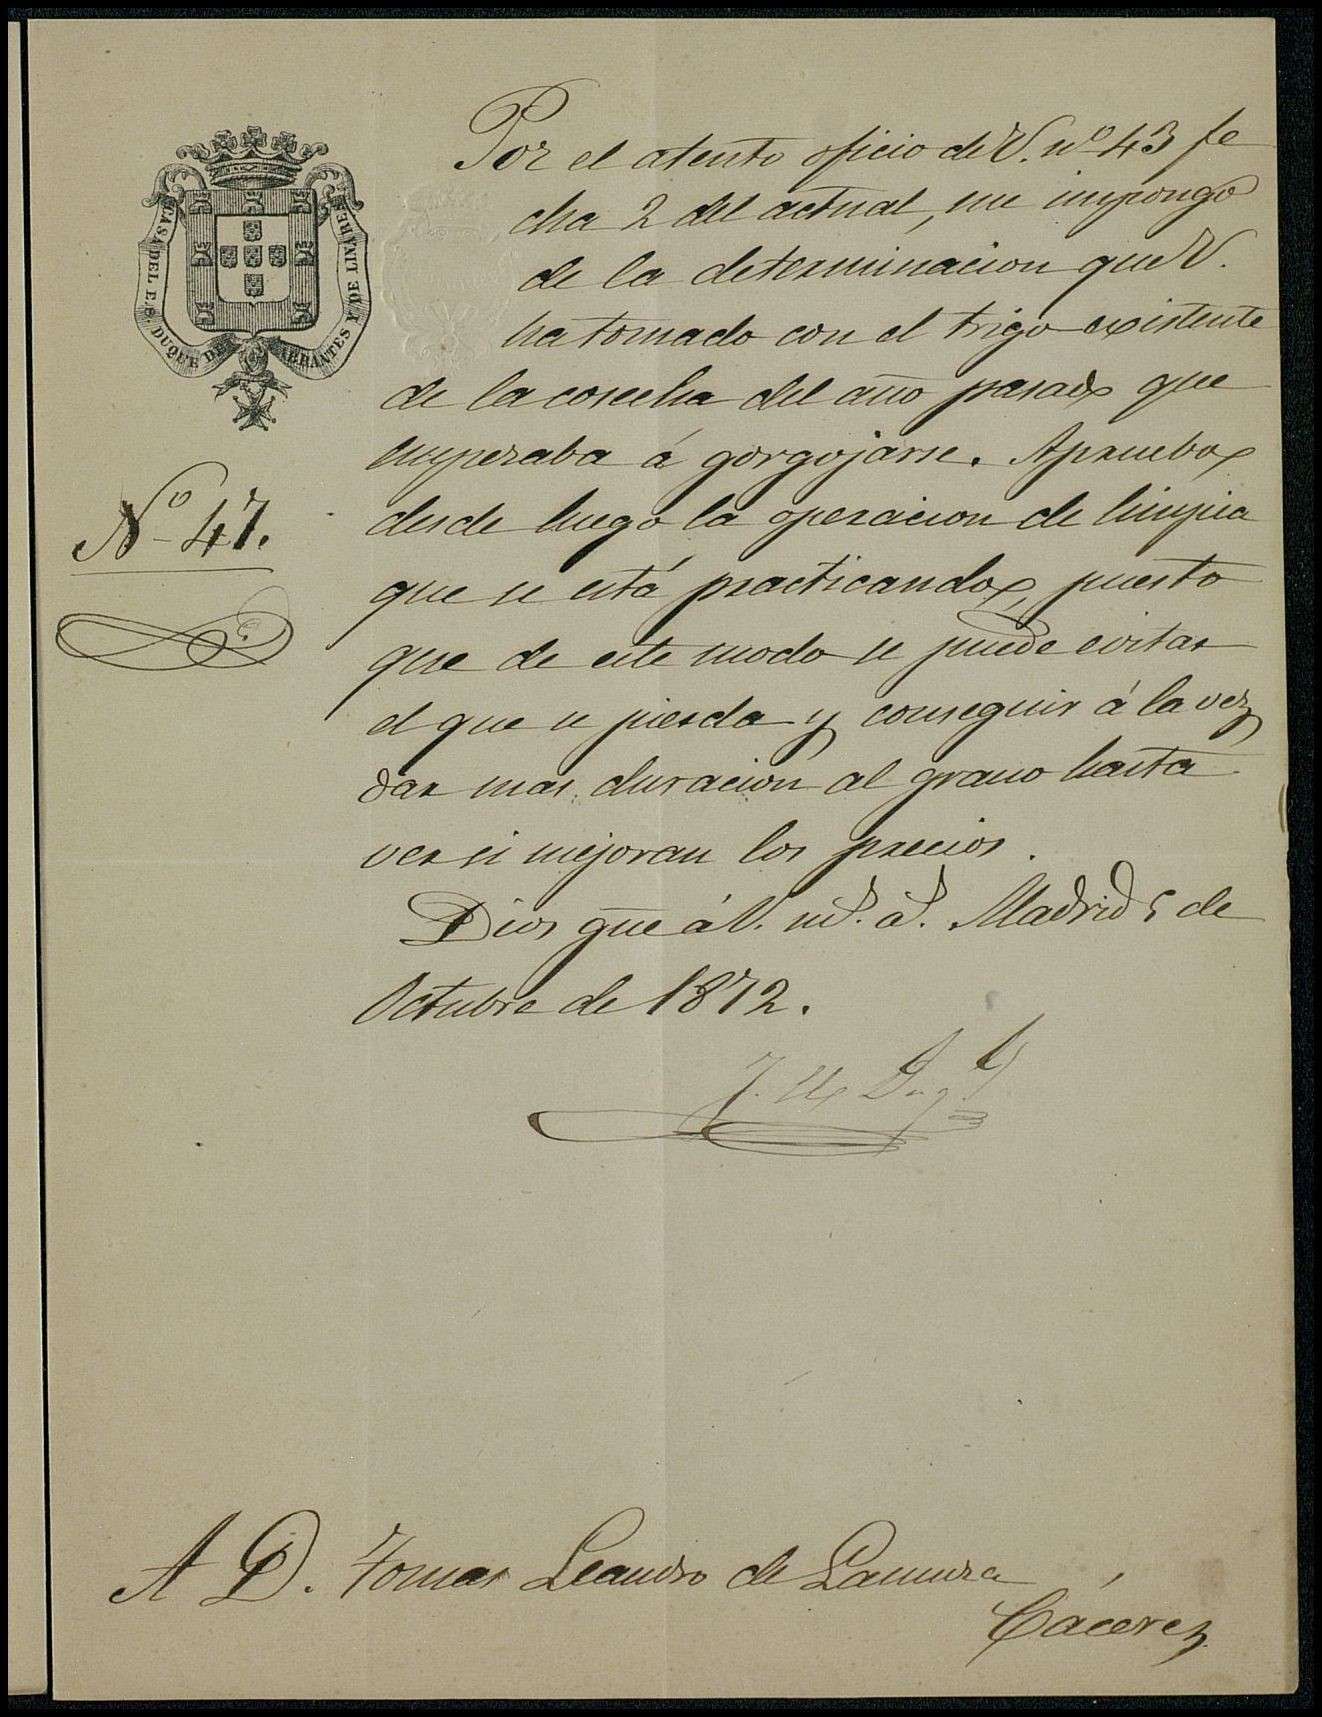 CASA DEL E.S. DUQUE DE ABRANTES Y DE LINARES
Nº 47.
Por el atento oficio de V. nº 43 fe
cha 2 del actual, me impongo
de la determinacion que V.
ha tomado con el trigo existente
de la cosecha del año pasado que
empezaba á gorgojarse. Apruebo
desde luego la operacion de limpia
que se está practicando, puesto
que de este modo se puede evitar
el que se pierda y conseguir á la vez
dar mas duracion al grano hasta
ver si mejoran los precios.
Dios gue á V. ms. as. Madrid 5 de
Octubre de 1872.
A D. Tomas Leandro de
Cáceres